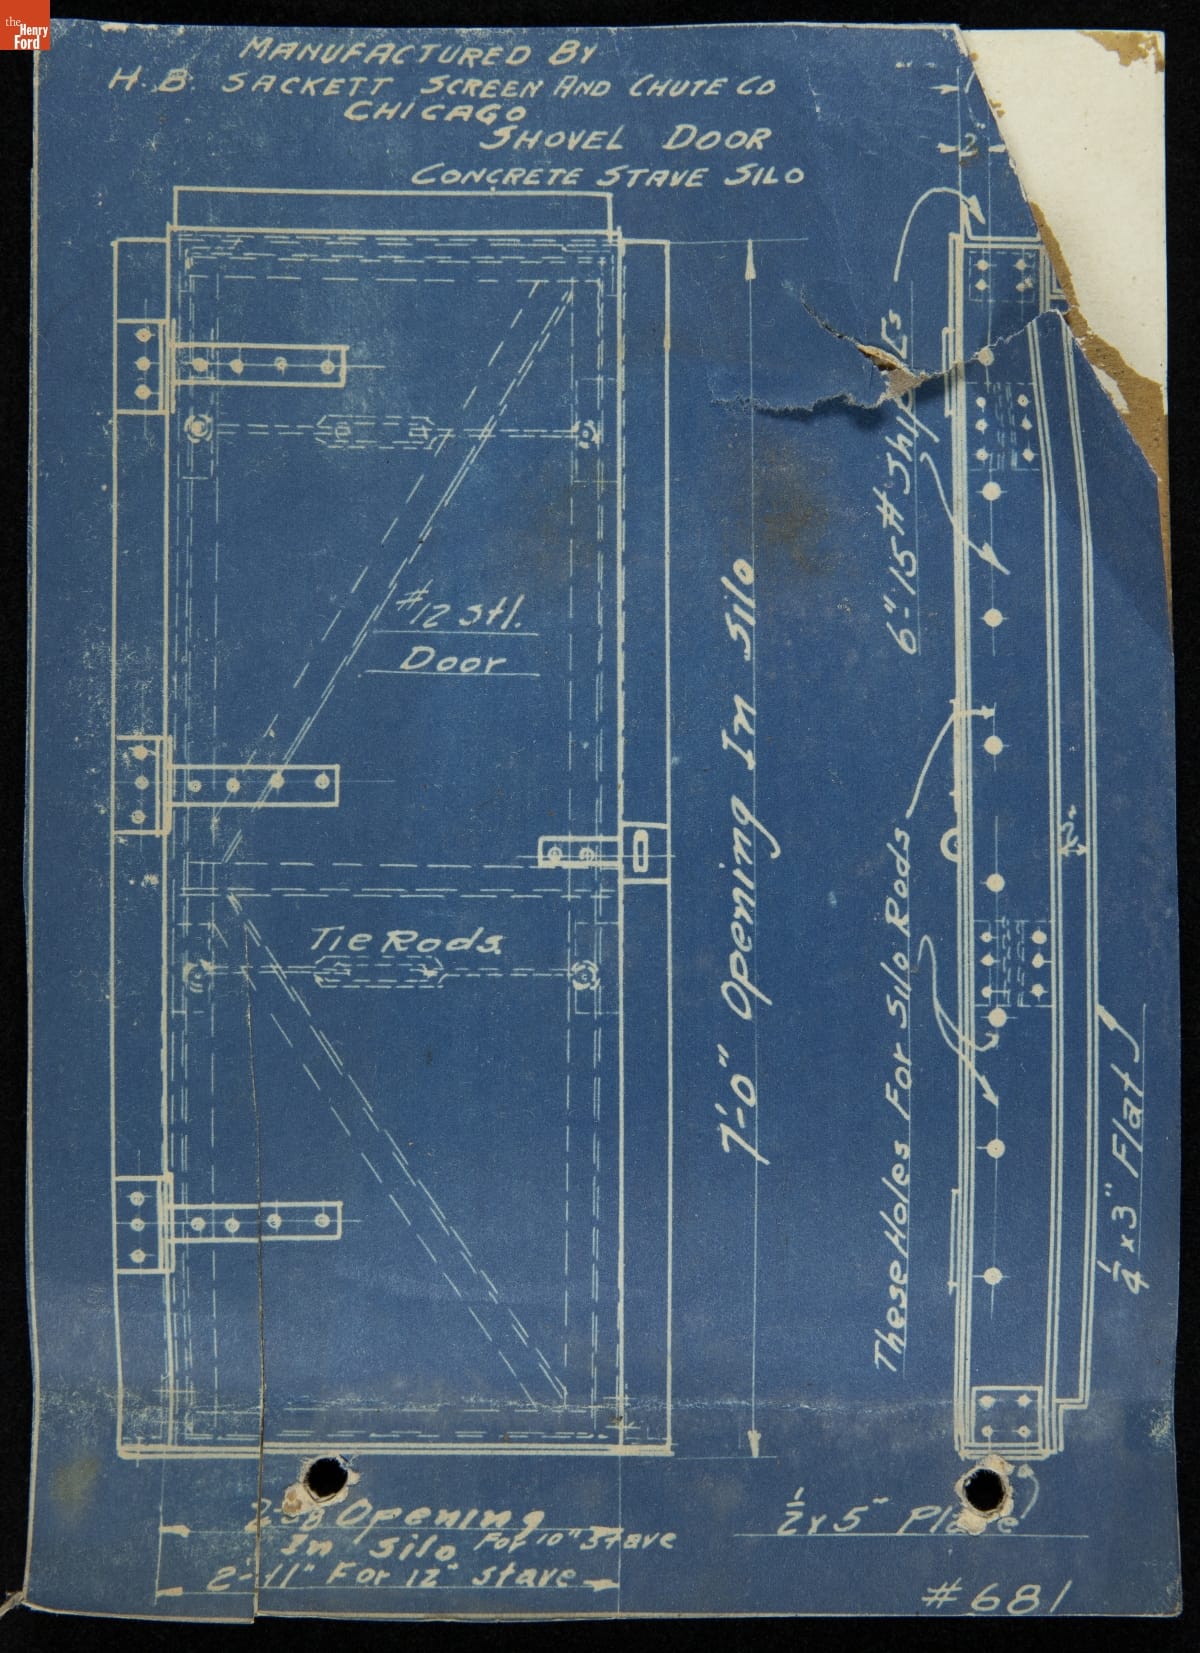 the
Henry
Ford
MANUFACTURED BY
H. B. SACKETT SCREEN AND CHUTE CO
CHICAGO
SHOVEL DOOR
CONCRETE STAVE SILO
2"
6"-15# Ship
#12 stl.
Door
7'-0" Opening In Silo
These Holes For Silo Rods
Tie Rods
1/4 x 3" Flat
Opening
In Silo For 10" Stave
2'-11" For 12" stave
1/2 x 5" Plate
#681